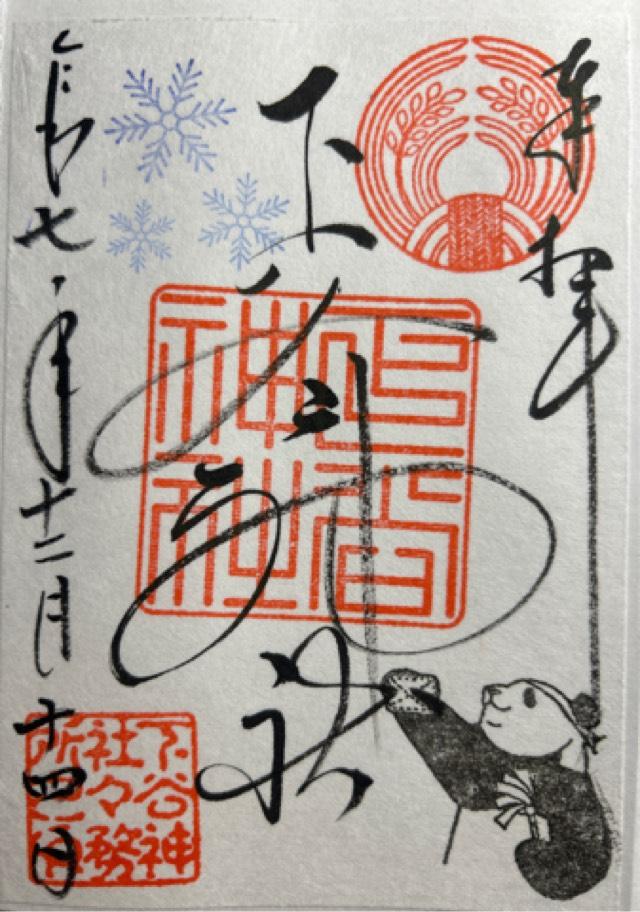 奉拝
下谷神社
下谷
神社
令和七年十二月十四日
下谷神
社々務
所之印